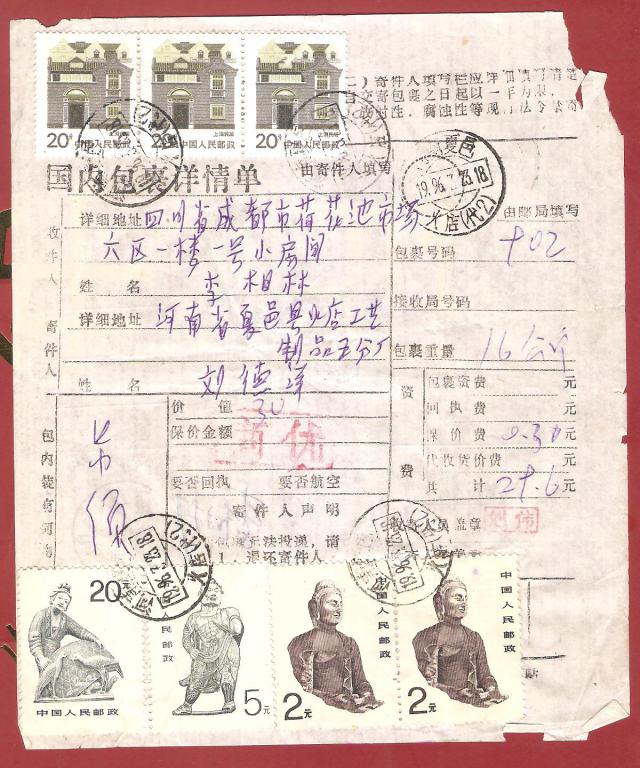 20分 上海民居
中国人民邮政
20分 上海民居
中国人民邮政
20分 上海民居
中国人民邮政
寄件人填写栏应详
寄包裹之日起以一年为限
腐蚀性等
国内包裹详情单
由寄件人填写
夏邑
1996.7.23.18
火店(代2)
由邮局填写
收件人
详细地址 四川省成都市荷花池市场
六区一楼一号小房间
姓名 李相林
寄件人
详细地址 河南省夏邑县火店工艺
制品五分厂
姓名 刘德洋
包裹号码 402
接收局号码
包裹重量 16公斤
资费
包裹资费 元
回执费 元
保价费 0.30元
代收货价费 元
共计 29.6元
包内装有何物
吊须
价值 30
保价金额
要否回执 要否航空
寄件人声明
包裹无法投递,请
1.退还寄件人
收寄人员盖章
1996.7.23.18
火店(代2)
1996.7.23.18
20分
中国人民邮政
中国人民邮政
5元
中国人民邮政
2元
中国人民邮政
2元